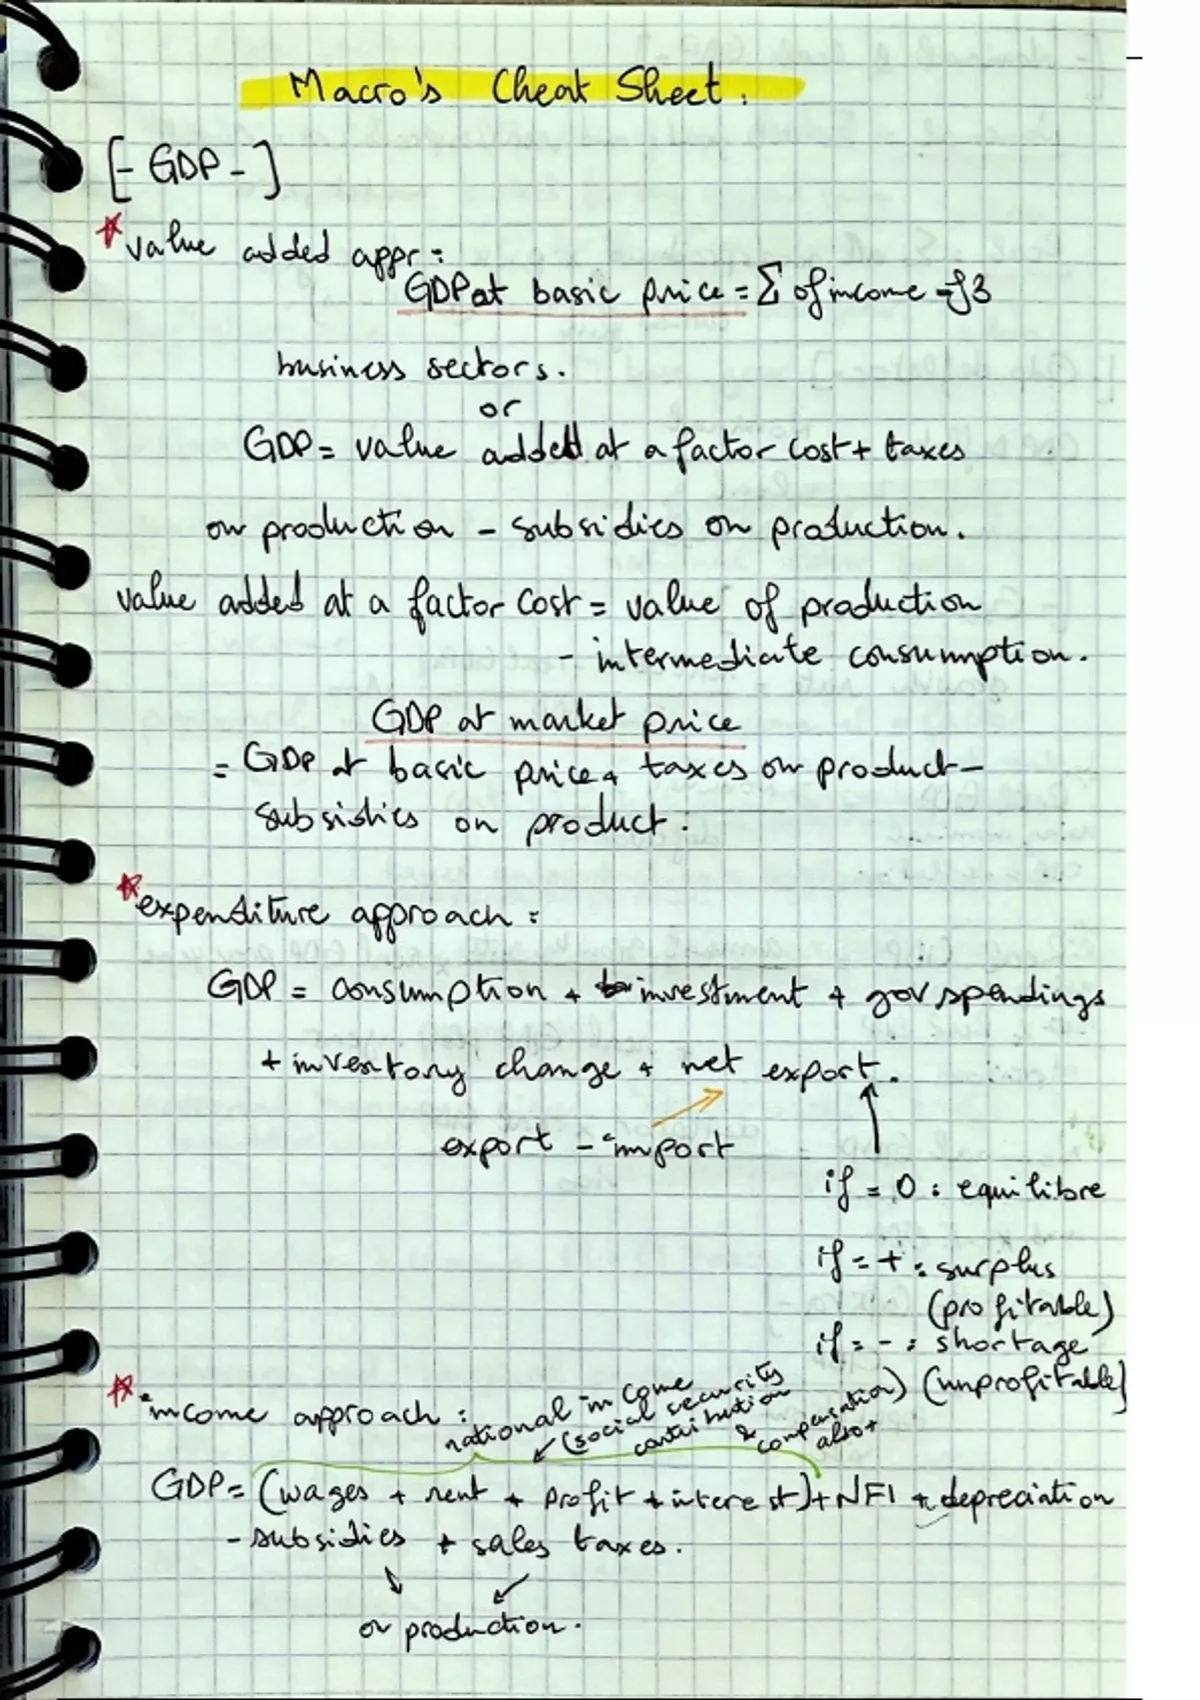 Macro's Cheat Sheet.
[- GDP -]
value added appr:
GDP at basic price = Σ of income of 3
business sectors.
or
GDP = value added at a factor cost + taxes
on production - subsidies on production.
value added at a factor cost = value of production
- intermediate consumption.
GDP at market price
= GDP at basic price + taxes on product -
subsidies on product.
expenditure approach:
GDP = consumption + investment + gov spendings
+ inventory change + net export.
export - import
if = 0 : equilibre
if = + : surplus
(profitable)
if = - : shortage
(unprofitable)
income approach:
national income
(social security
contribution
& compensation)
also +
GDP = (wages + rent + profit + interest) + NFI + depreciation
- subsidies + sales taxes.
on production.